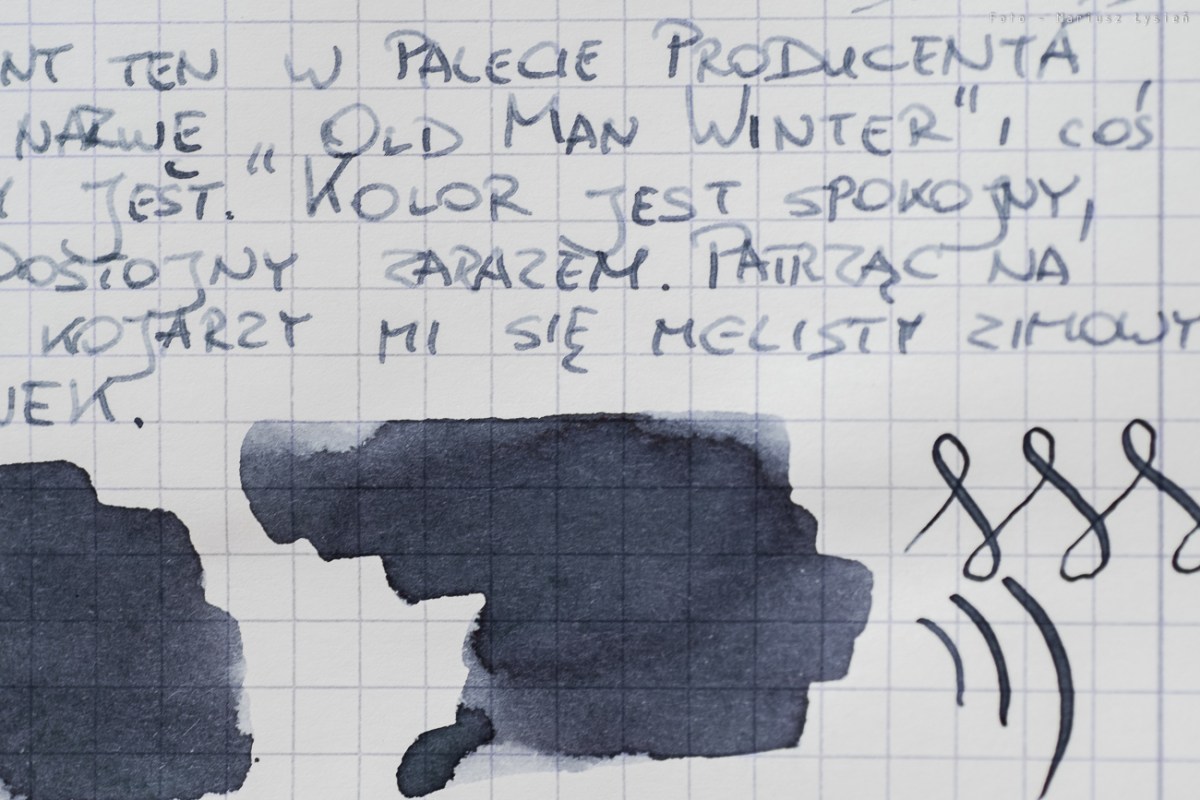 Foto - Mariusz Łysień
TEN W PALECIE PRODUCENTA
NAZWĘ "OLD MAN WINTER" I COŚ
JEST. "KOLOR JEST SPOKOJNY,
DOSTOJNY ZARAZEM. PATRZĄC NA
KOJARZY MI SIĘ MGLISTY ZIMOWY